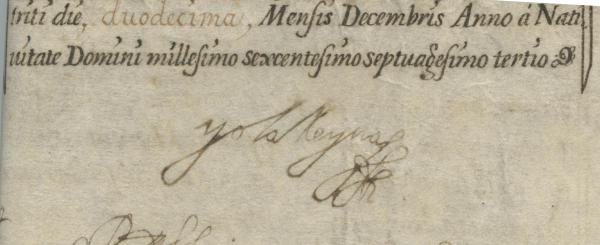 triti die, duodecima, Mensis Decembris Anno á Nati,
uitate Domini millesimo sexcentesimo septuagesimo tertio
yo la Reyna